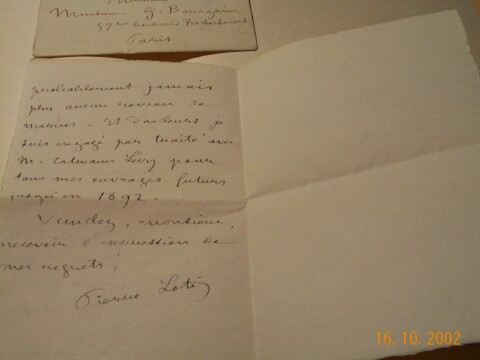 Monsieur G. Bourgain
57 bis boulevard Rochechouart
Paris
probablement jamais
plus aucun roman de
marins. Et d'ailleurs je
suis engagé par traité avec
M. Calmann Lévy pour
tous mes ouvrages futurs
jusqu'en 1892.
Veuillez, monsieur,
recevoir l'expression de
mes regrets,
Pierre Loti
16.10.2002